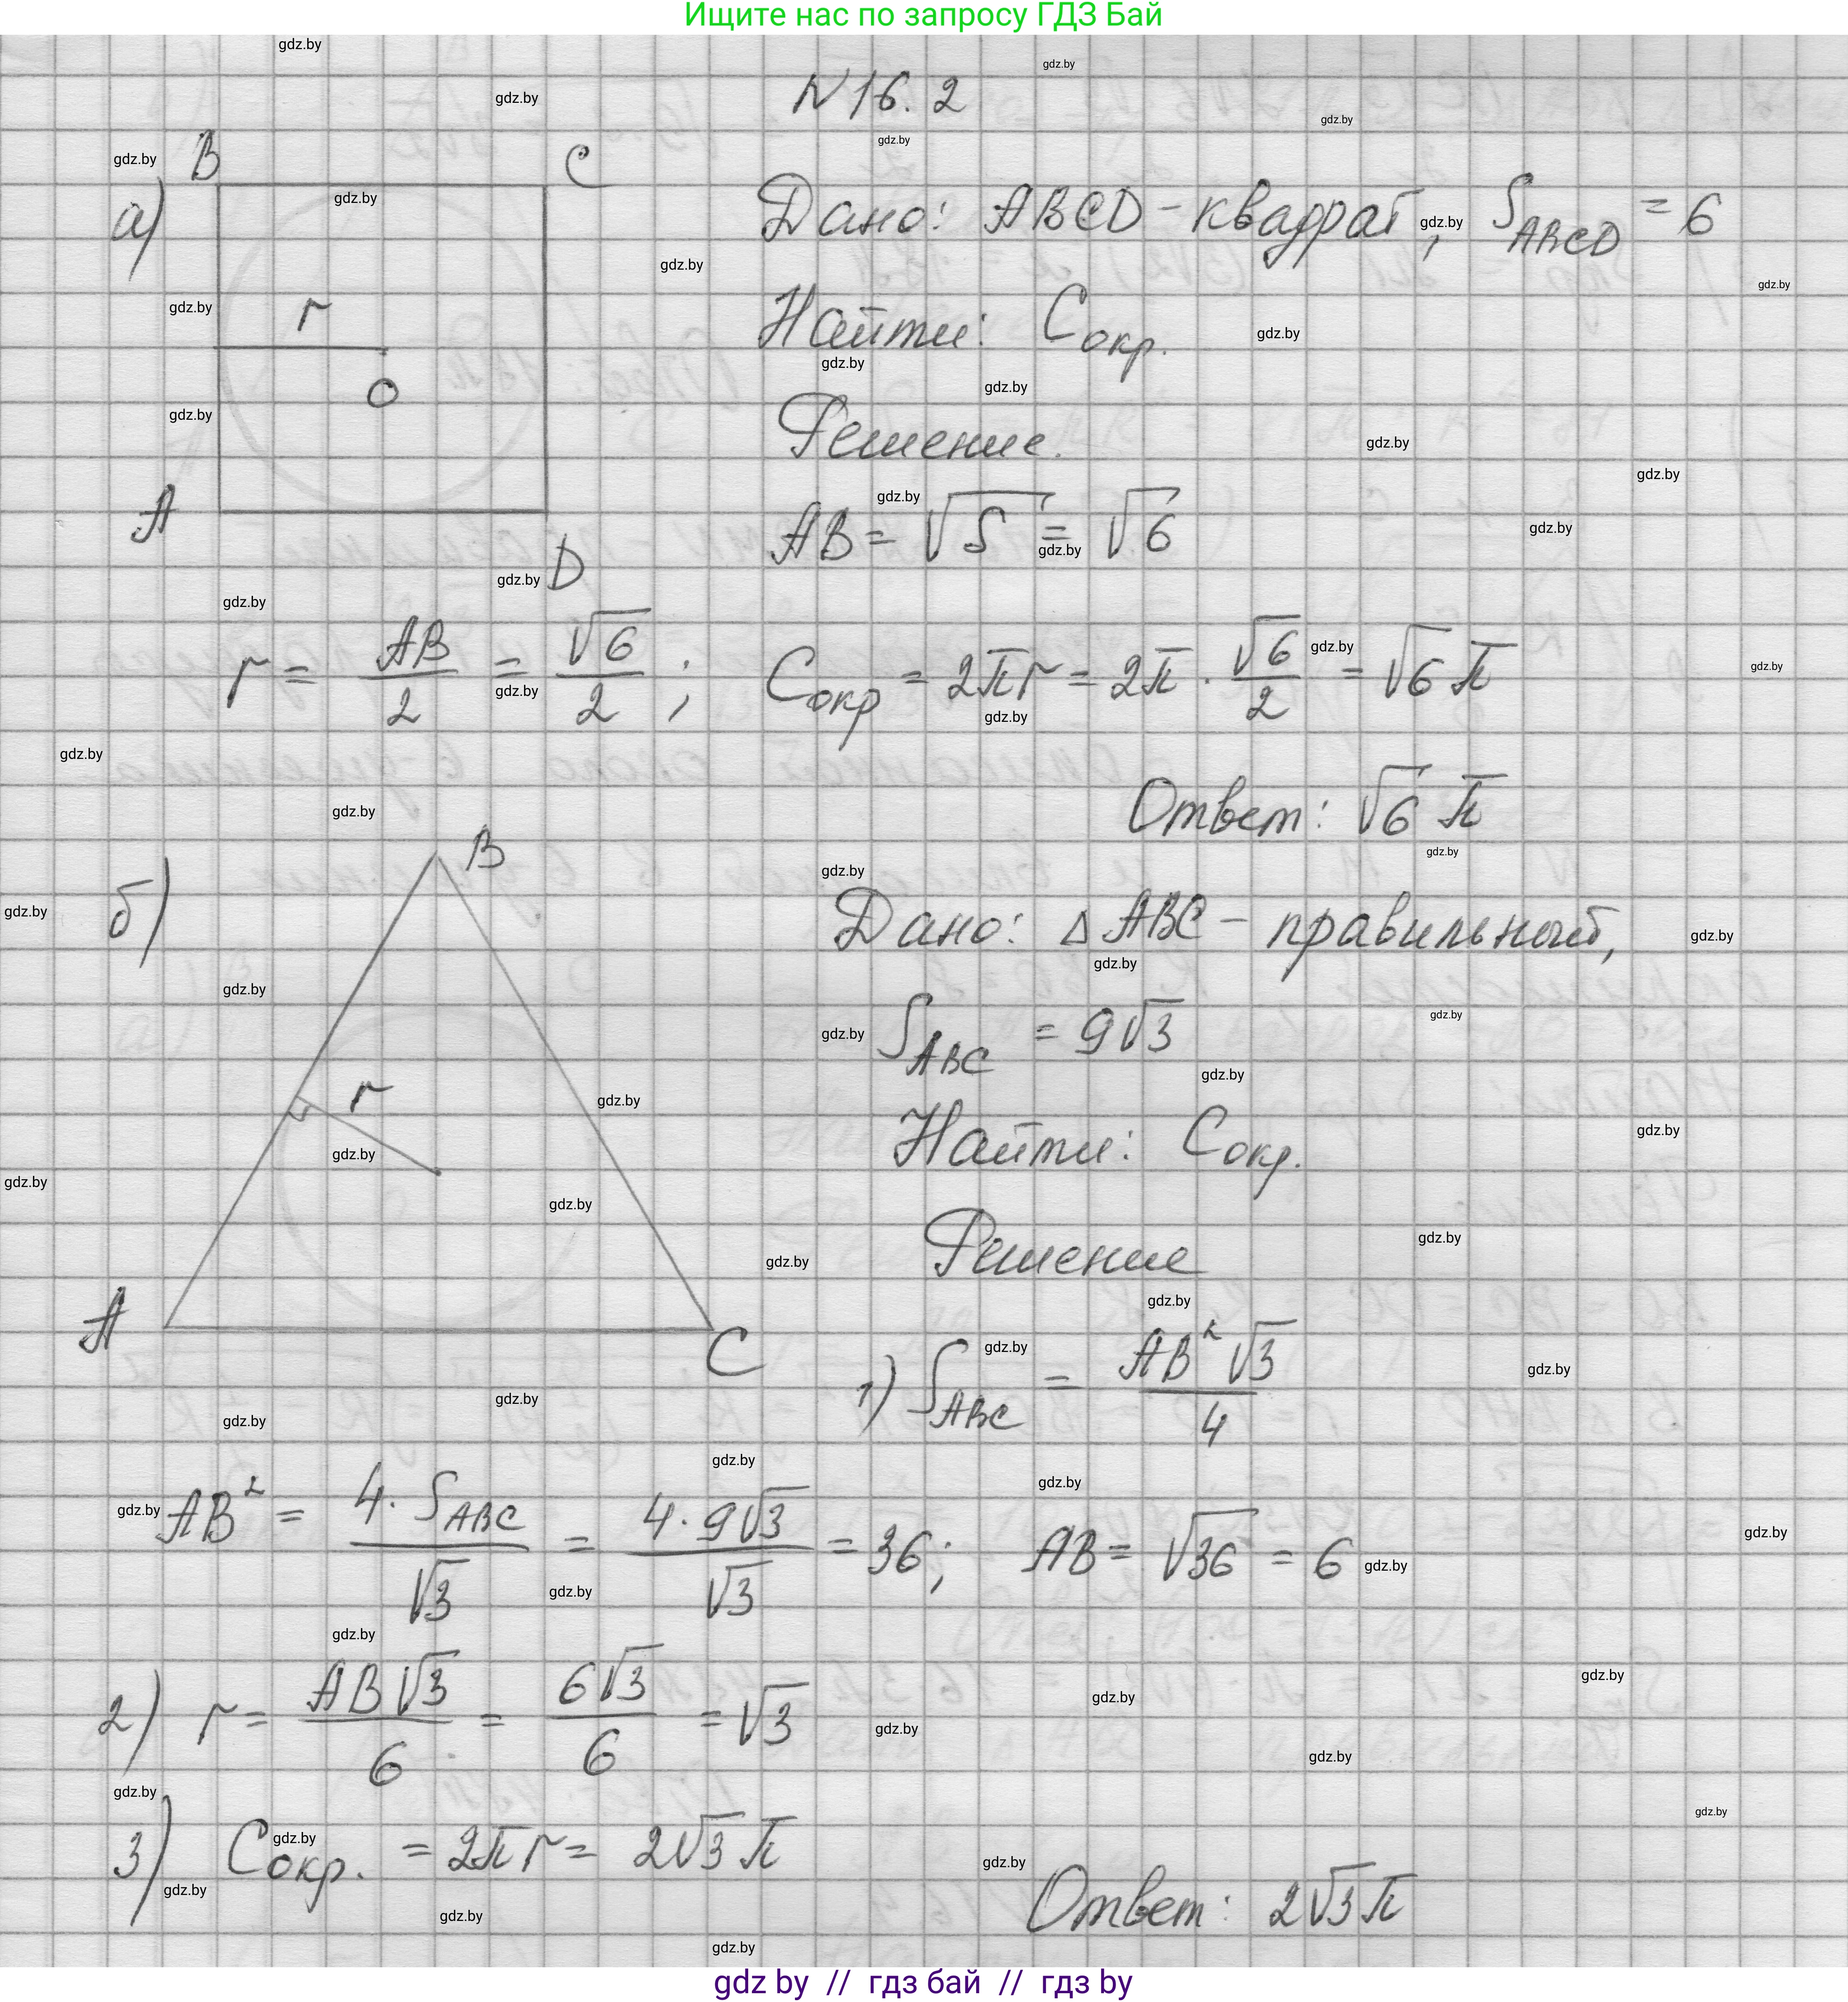 Ищите нас по запросу ГДЗ Бай
N 16. 2
а)
B
C
r
O
A
D
Дано: ABCD - квадрат, S_ABCD = 6
Найти: C окр.
Решение.
AB = √S = √6
r = AB/2 = √6/2 ; C окр = 2πr = 2π · √6/2 = √6 π
Ответ: √6 π
б)
B
r
A
C
Дано: △ ABC - правильный,
S_ABC = 9√3
Найти: C окр.
Решение
1) S_ABC = AB²√3/4
AB² = 4 · S_ABC/√3 = 4 · 9√3/√3 = 36; AB = √36 = 6
2) r = AB√3/6 = 6√3/6 = √3
3) C окр. = 2πr = 2√3 π
Ответ: 2√3 π
gdz by // гдз бай // гдз by